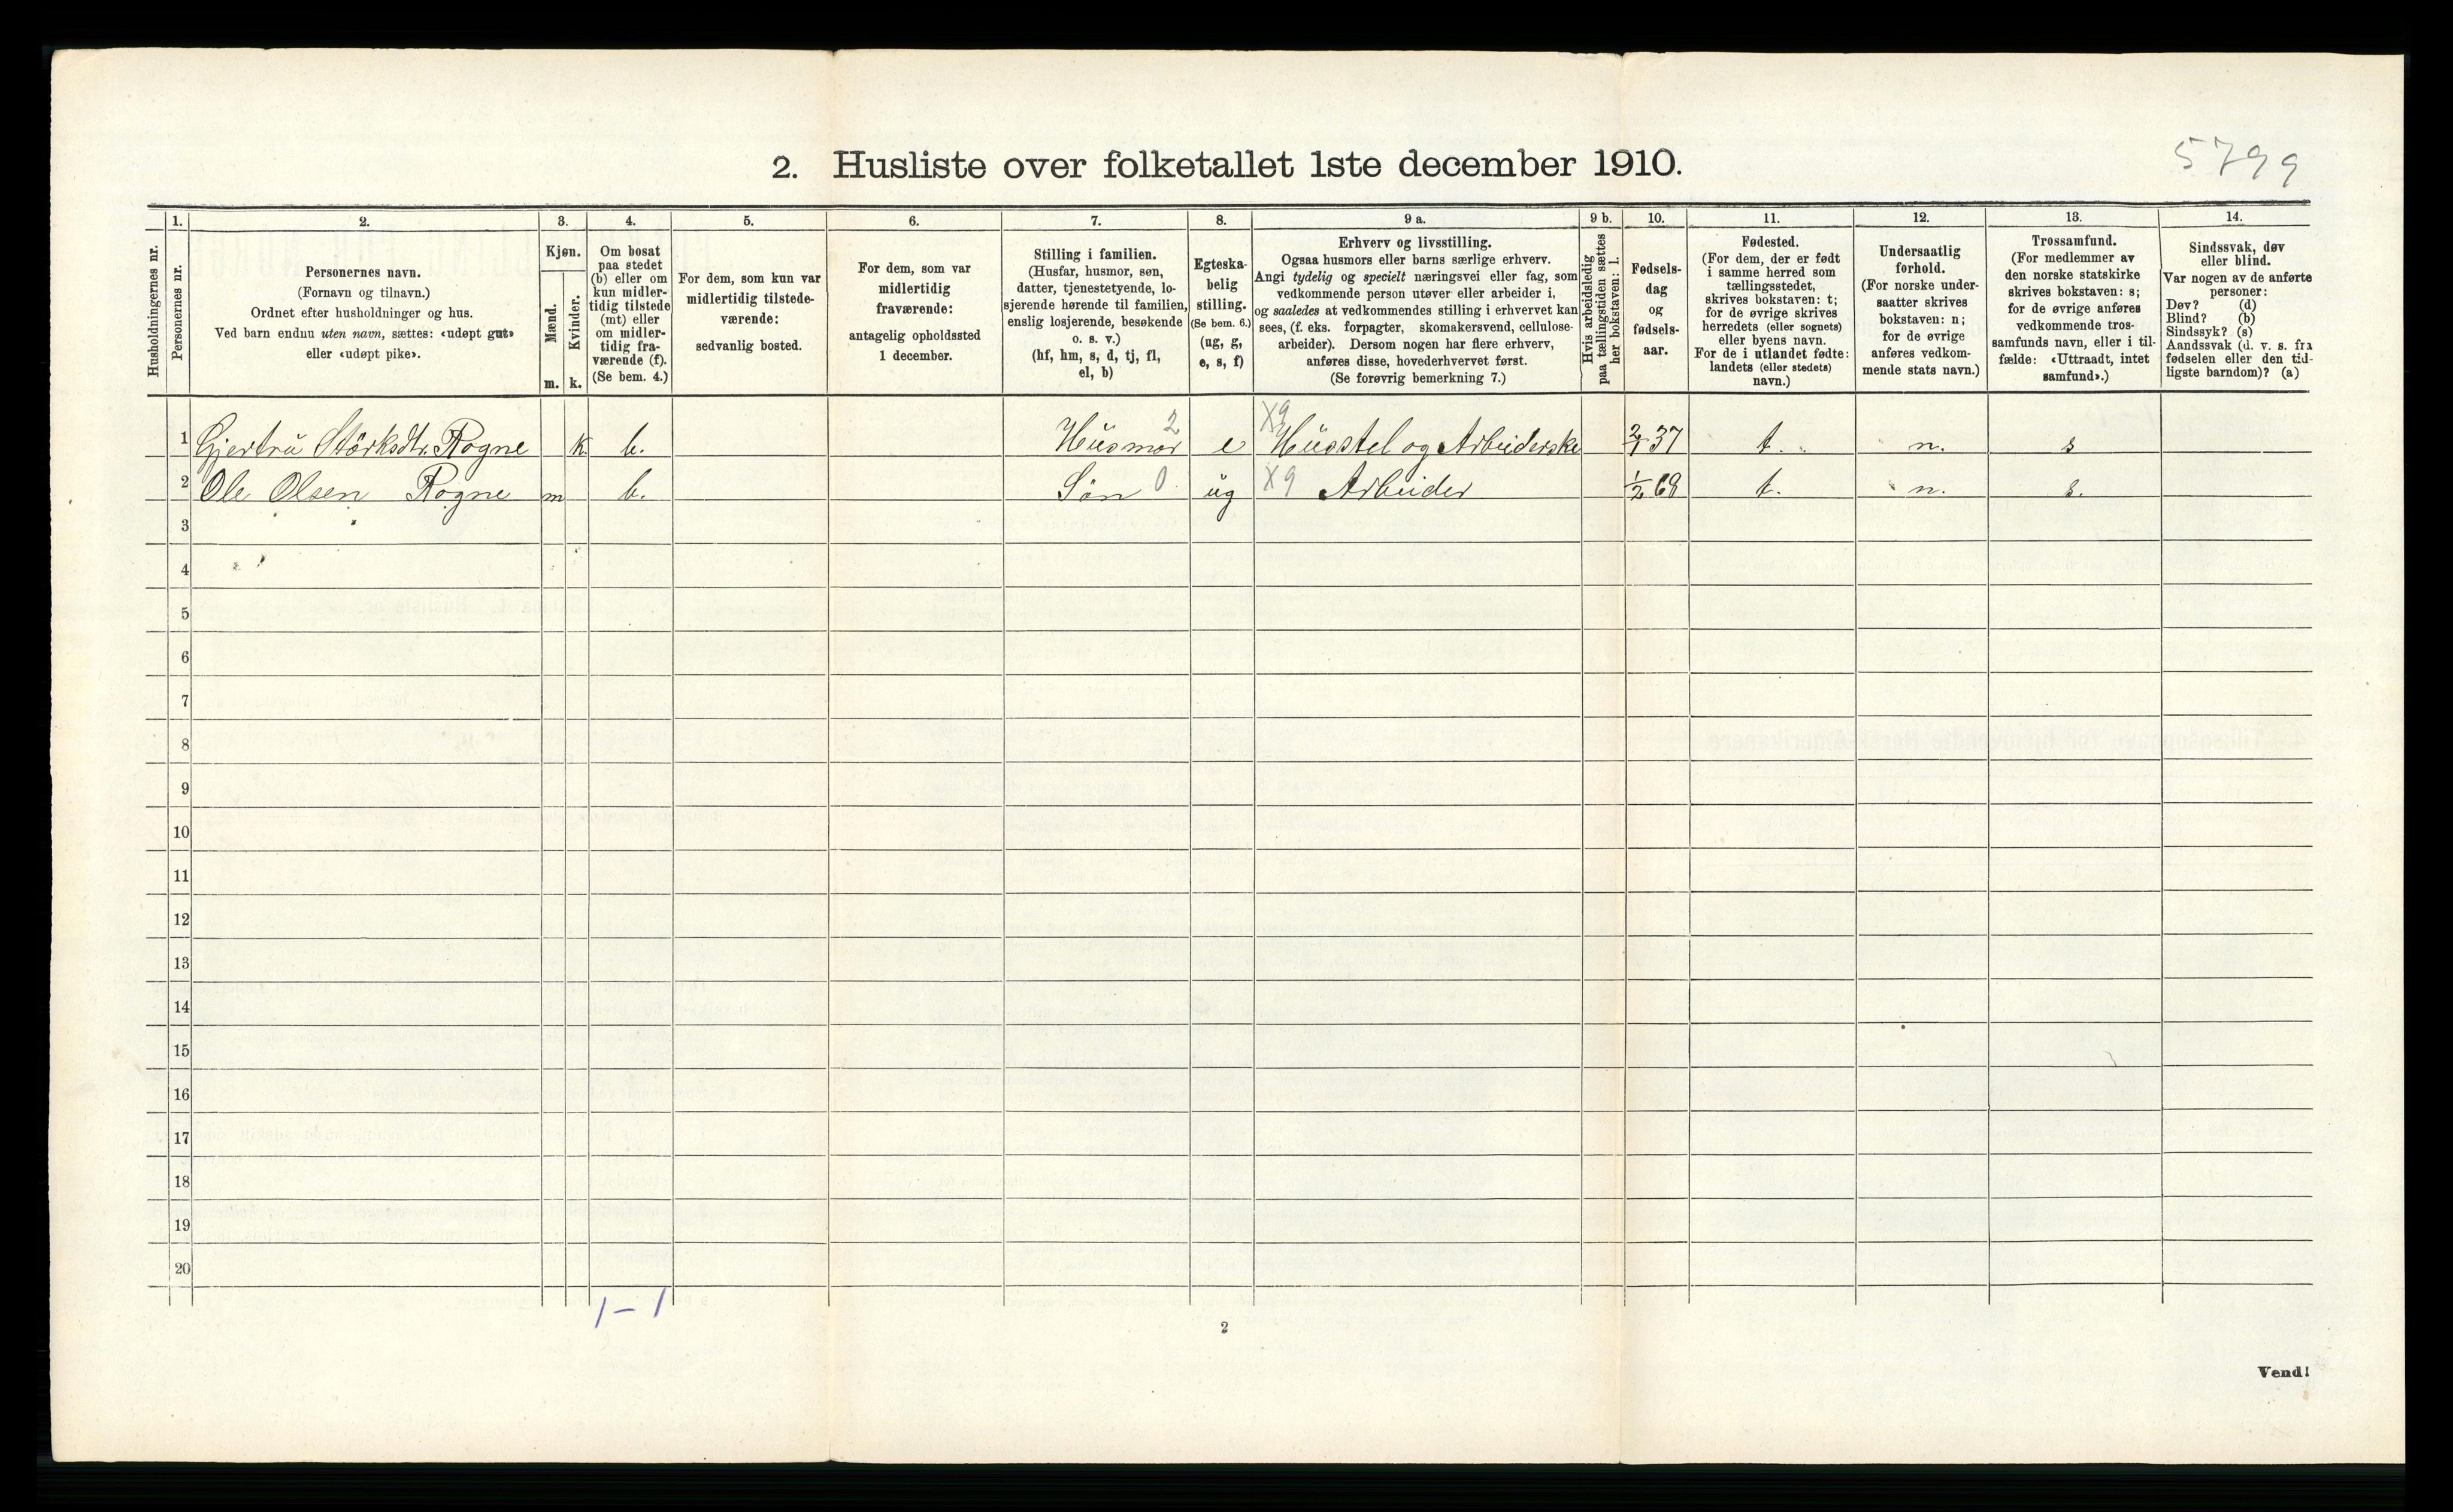 5799
2. Husliste over folketallet 1ste december 1910.
Husholdningernes nr.
1.
Personernes nr.
2.
Personernes navn.
(Fornavn og tilnavn.)
Ordnet efter husholdninger og hus.
Ved barn endnu uten navn, sættes: «udøpt gut»
eller «udøpt pike».
3.
Kjøn.
Mænd.
m.
Kvinder.
k.
4.
Om bosat
paa stedet
(b) eller om
kun midler-
tidig tilstede
(mt) eller
om midler-
tidig fra-
værende (f).
(Se bem. 4.)
5.
For dem, som kun var
midlertidig tilstede-
værende:
sedvanlig bosted.
6.
For dem, som var
midlertidig
fraværende:
antagelig opholdssted
1 december.
7.
Stilling i familien.
(Husfar, husmor, søn,
datter, tjenestetyende, lo-
sjerende hørende til familien,
enslig losjerende, besøkende
o. s. v.)
(hf, hm, s, d, tj, fl,
el, b)
8.
Egteska-
belig
stilling.
(Se bem. 6.)
(ug, g,
e, s, f)
9 a.
Erhverv og livsstilling.
Ogsaa husmors eller barns særlige erhverv.
Angi tydelig og specielt næringsvei eller fag, som
vedkommende person utøver eller arbeider i,
og saaledes at vedkommendes stilling i erhvervet kan
sees, (f. eks. forpagter, skomakersvend, cellulose-
arbeider). Dersom nogen har flere erhverv,
anføres disse, hovederhvervet først.
(Se forøvrig bemerkning 7.)
9 b.
Hvis arbeidsledig
paa tællingstiden sættes
her bokstaven: l.
10.
Fødsels-
dag
og
fødsels-
aar.
11.
Fødested.
(For dem, der er født
i samme herred som
tællingsstedet,
skrives bokstaven: t;
for de øvrige skrives
herredets (eller sognets)
eller byens navn.
For de i utlandet fødte:
landets (eller stedets)
navn.)
12.
Undersaatlig
forhold.
(For norske under-
saatter skrives
bokstaven: n;
for de øvrige
anføres vedkom-
mende stats navn.)
13.
Trossamfund.
(For medlemmer av
den norske statskirke
skrives bokstaven: s;
for de øvrige anføres
vedkommende tros-
samfunds navn, eller i til-
fælde: «Uttraadt, intet
samfund».)
14.
Sindssvak, døv
eller blind.
Var nogen av de anførte
personer:
Døv? (d)
Blind? (b)
Sindssyk? (s)
Aandssvak (d. v. s. fra
fødselen eller den tid-
ligste barndom)? (a)
1 Gjertru Störksdtr. Rogne k. b. Husmor 2 e X9 Husstel og Arbeiderske 2/1 37 t. n. s
2 Ole Olsen Rogne m b. Sön 0 ug X9 Arbeider 1/2 68 t. n. s.
3
4
5
6
7
8
9
10
11
12
13
14
15
16
17
18
19
20
1 – 1
2
Vend!